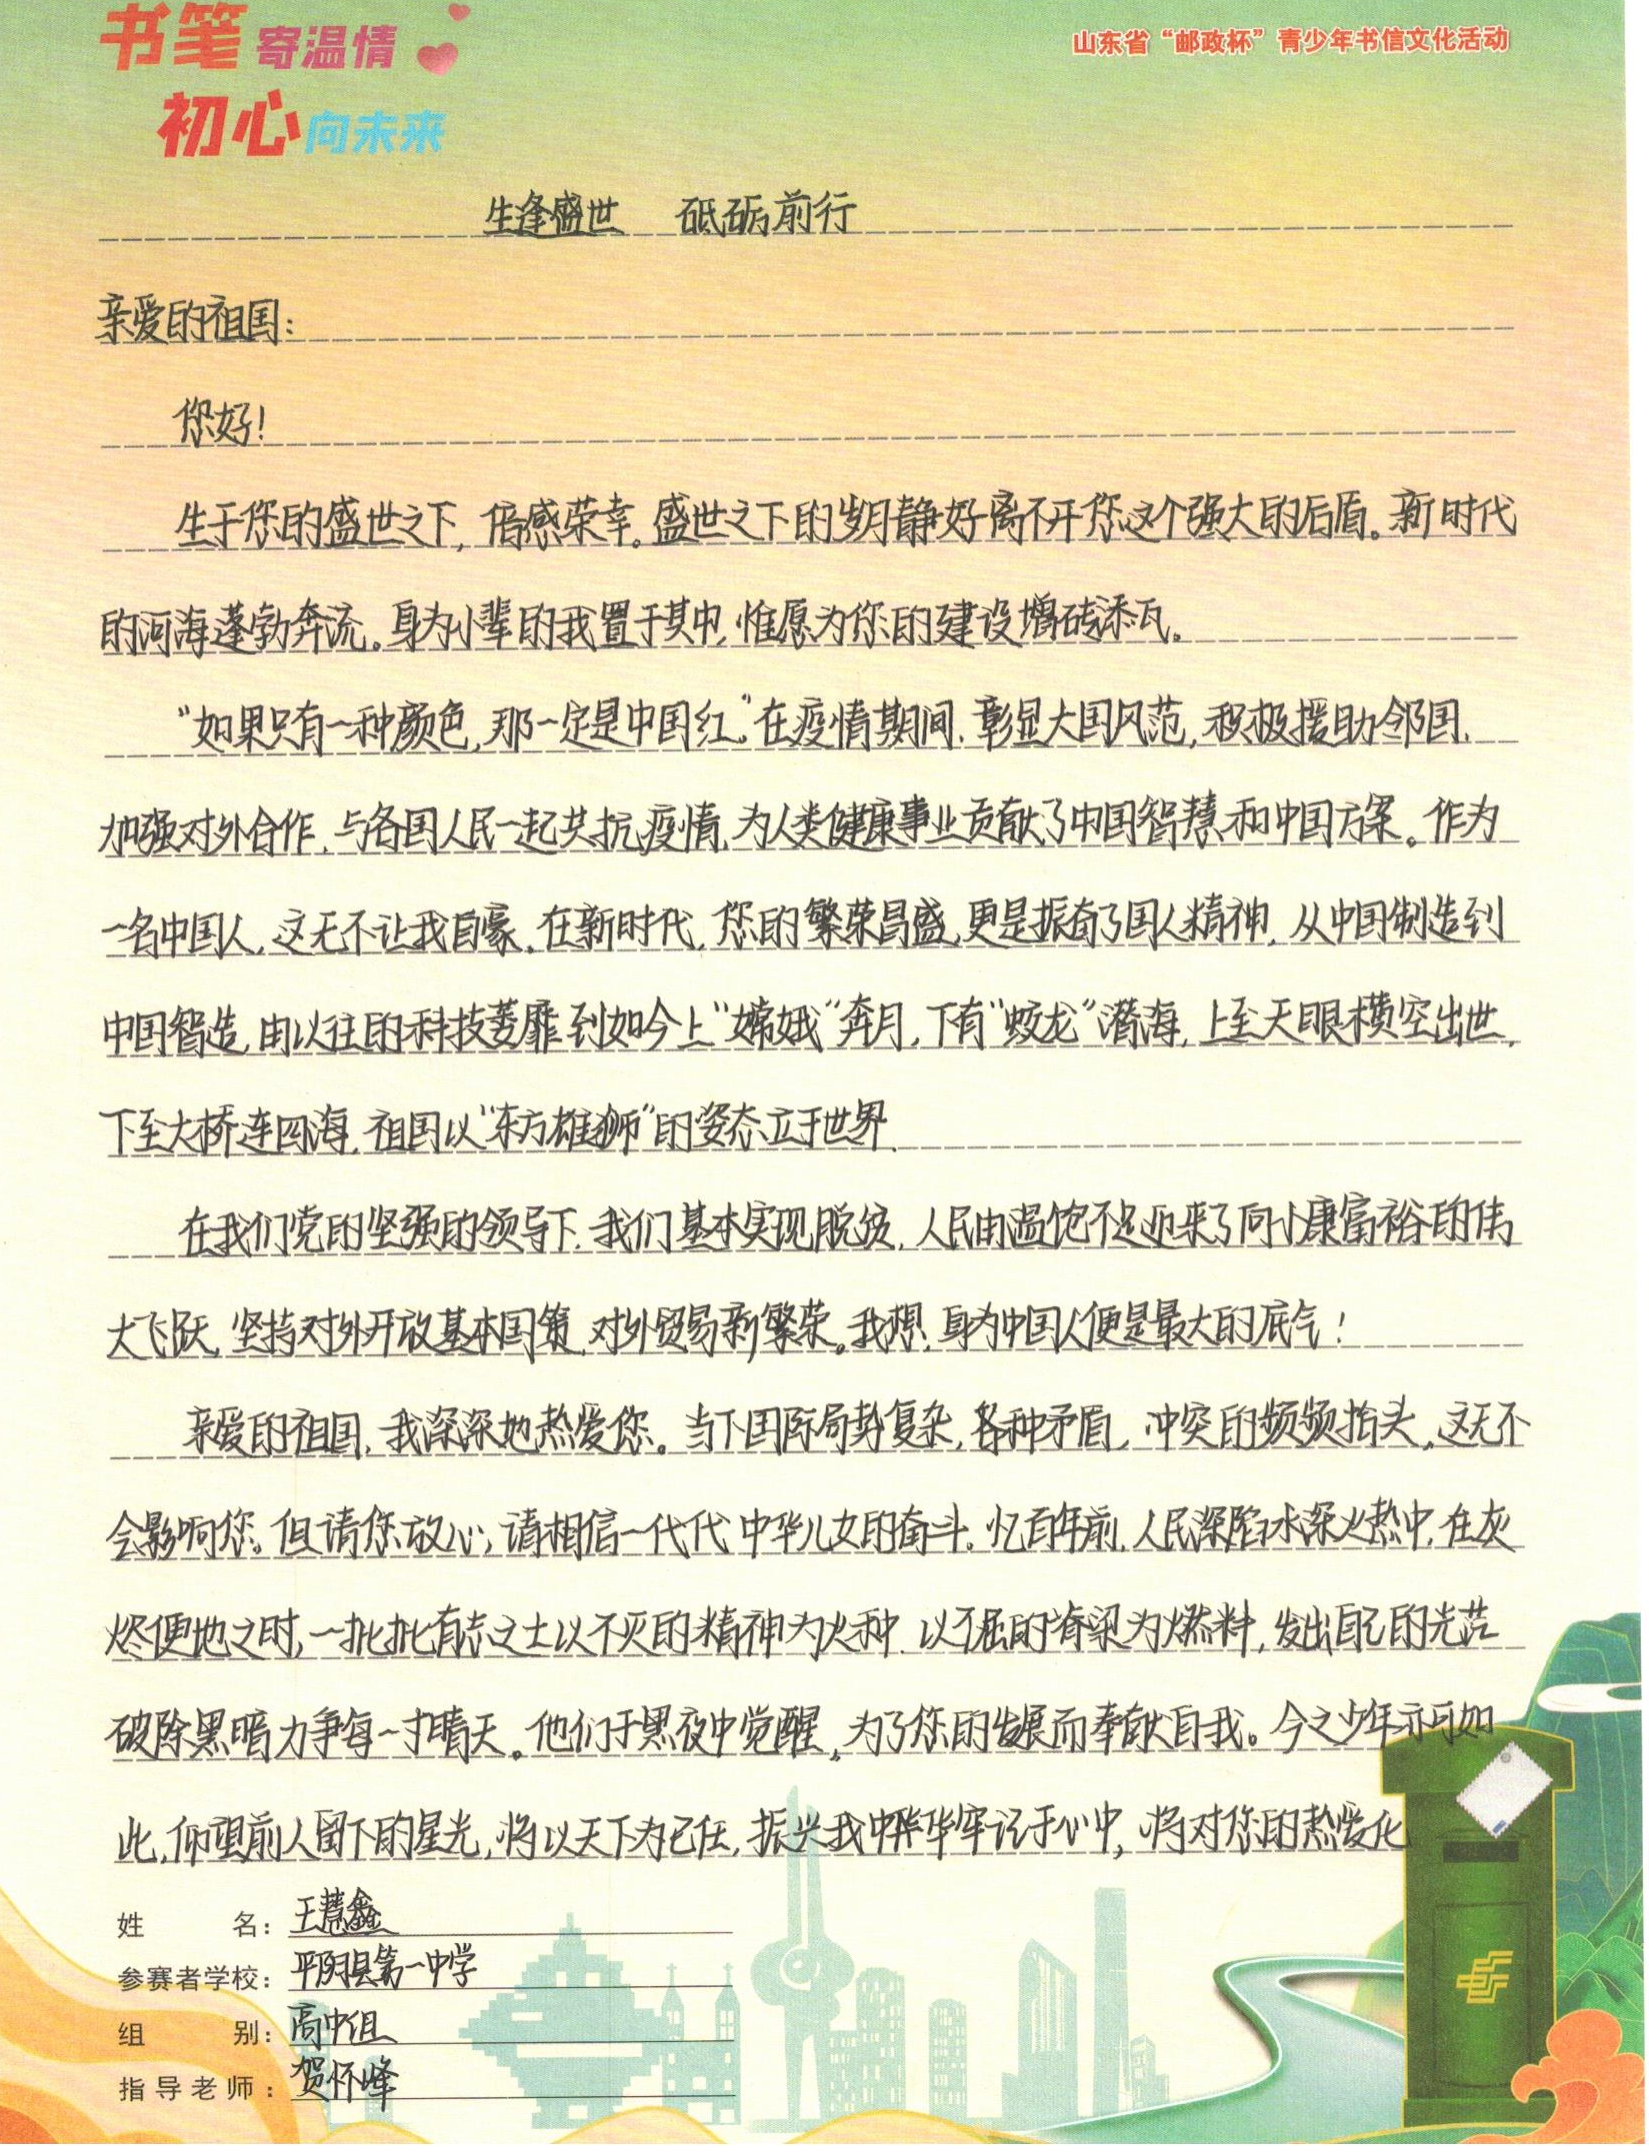 书笔 寄温情
山东省“邮政杯”青少年书信文化活动
初心 向未来
生逢盛世 砥砺前行
亲爱的祖国:
您好!
生于您的盛世之下,倍感荣幸。盛世之下的岁月静好离不开您这个强大的后盾。新时代
的河海蓬勃奔流。身为小辈的我置于其中,惟愿为您的建设增砖添瓦。
“如果只有一种颜色,那一定是中国红。”在疫情期间,彰显大国风范,积极援助邻国,
加强对外合作,与各国人民一起共抗疫情,为人类健康事业贡献了中国智慧和中国方案。作为
一名中国人,这无不让我自豪。在新时代,您的繁荣昌盛,更是振奋了国人精神,从中国制造到
中国智造,由以往的科技萎靡到如今上“嫦娥”奔月,下有“蛟龙”潜海,上至天眼横空出世,
下至大桥连四海,祖国以“东方雄狮”的姿态立于世界.
在我们党的坚强的领导下,我们基本实现脱贫,人民由温饱不足迎来了向小康富裕的伟
大飞跃,坚持对外开放基本国策,对外贸易新繁荣。我想,身为中国人便是最大的底气!
亲爱的祖国,我深深地热爱您。当下国际局势复杂,各种矛盾,冲突的频频抬头,这无不
会影响您。但请您放心,请相信一代代中华儿女的奋斗。忆百年前,人民深陷水深火热中,在灰
烬便地之时,一批批有志之士以不灭的精神为火种,以不屈的脊梁为燃料,发出自己的光芒
破除黑暗力争每一寸晴天。他们于黑夜中觉醒,为了您的发展而奉献自我。今之少年亦可如
此,仰望前人留下的星光,将以天下为己任,振兴我中华牢记于心中,将对您的热爱化
姓名:王慧鑫
参赛者学校:平阴县第一中学
组别:高中组
指导老师:贺怀峰